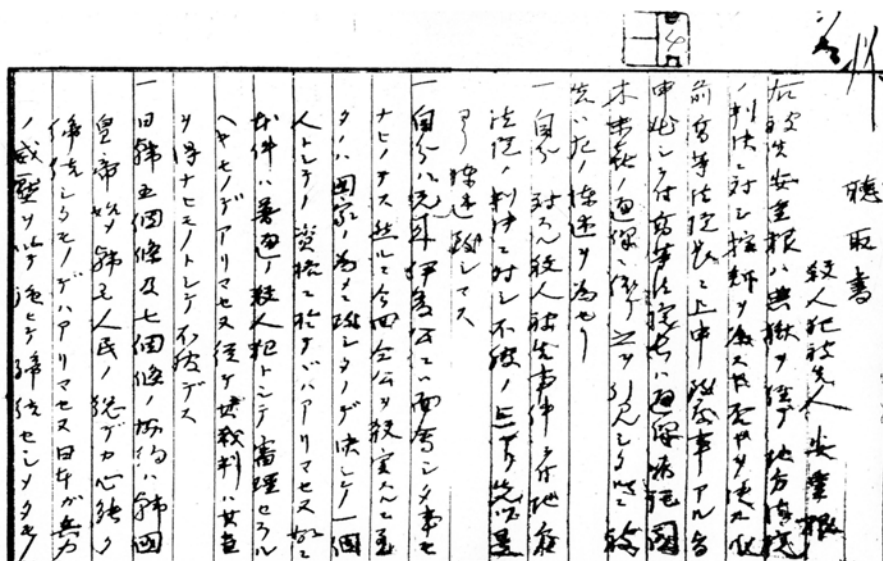 聴取書
殺人犯被告人 安重根
右被告安重根ハ典獄ヲ経テ地方法院
ノ判決ニ対シ控訴ヲ為スヤ否ヤヲ決スル
前高等法院長ニ上申 事アル旨
申出シニ付高等法院長ハ通訳 園
木末喜ノ通訳ニ依リ之ヲ引見シタルニ被
告ハ左ノ陳述ヲ為セリ
一 自分ニ対スル殺人被告事件ニ付地方
法院ノ判決ニ対シ不服ノ点
陳述致シマス
一 自分ハ元来伊藤公ニハ面会シタ事モ
ナヒノデス然ルニ今回仝公ヲ殺害スルニ至
タノハ国家ノ為メニ致シタノデ決シテ一個
人トシテノ資格ニ於テデハアリマセヌ故ニ
本件ハ普通ノ殺人犯トシテ審理セラル
ヘキモノデアリマセヌ従テ 裁判ハ其当
ヲ得ナヒモノトシテ不服デス
一 日韓五個條及七個條ノ協約ハ韓国
皇帝始メ韓国人民ノ総テカ心能ク
締結シタモノデハアリマセヌ日本が兵力
ノ威圧ヲ以テ強ヒテ締結センメタモノ